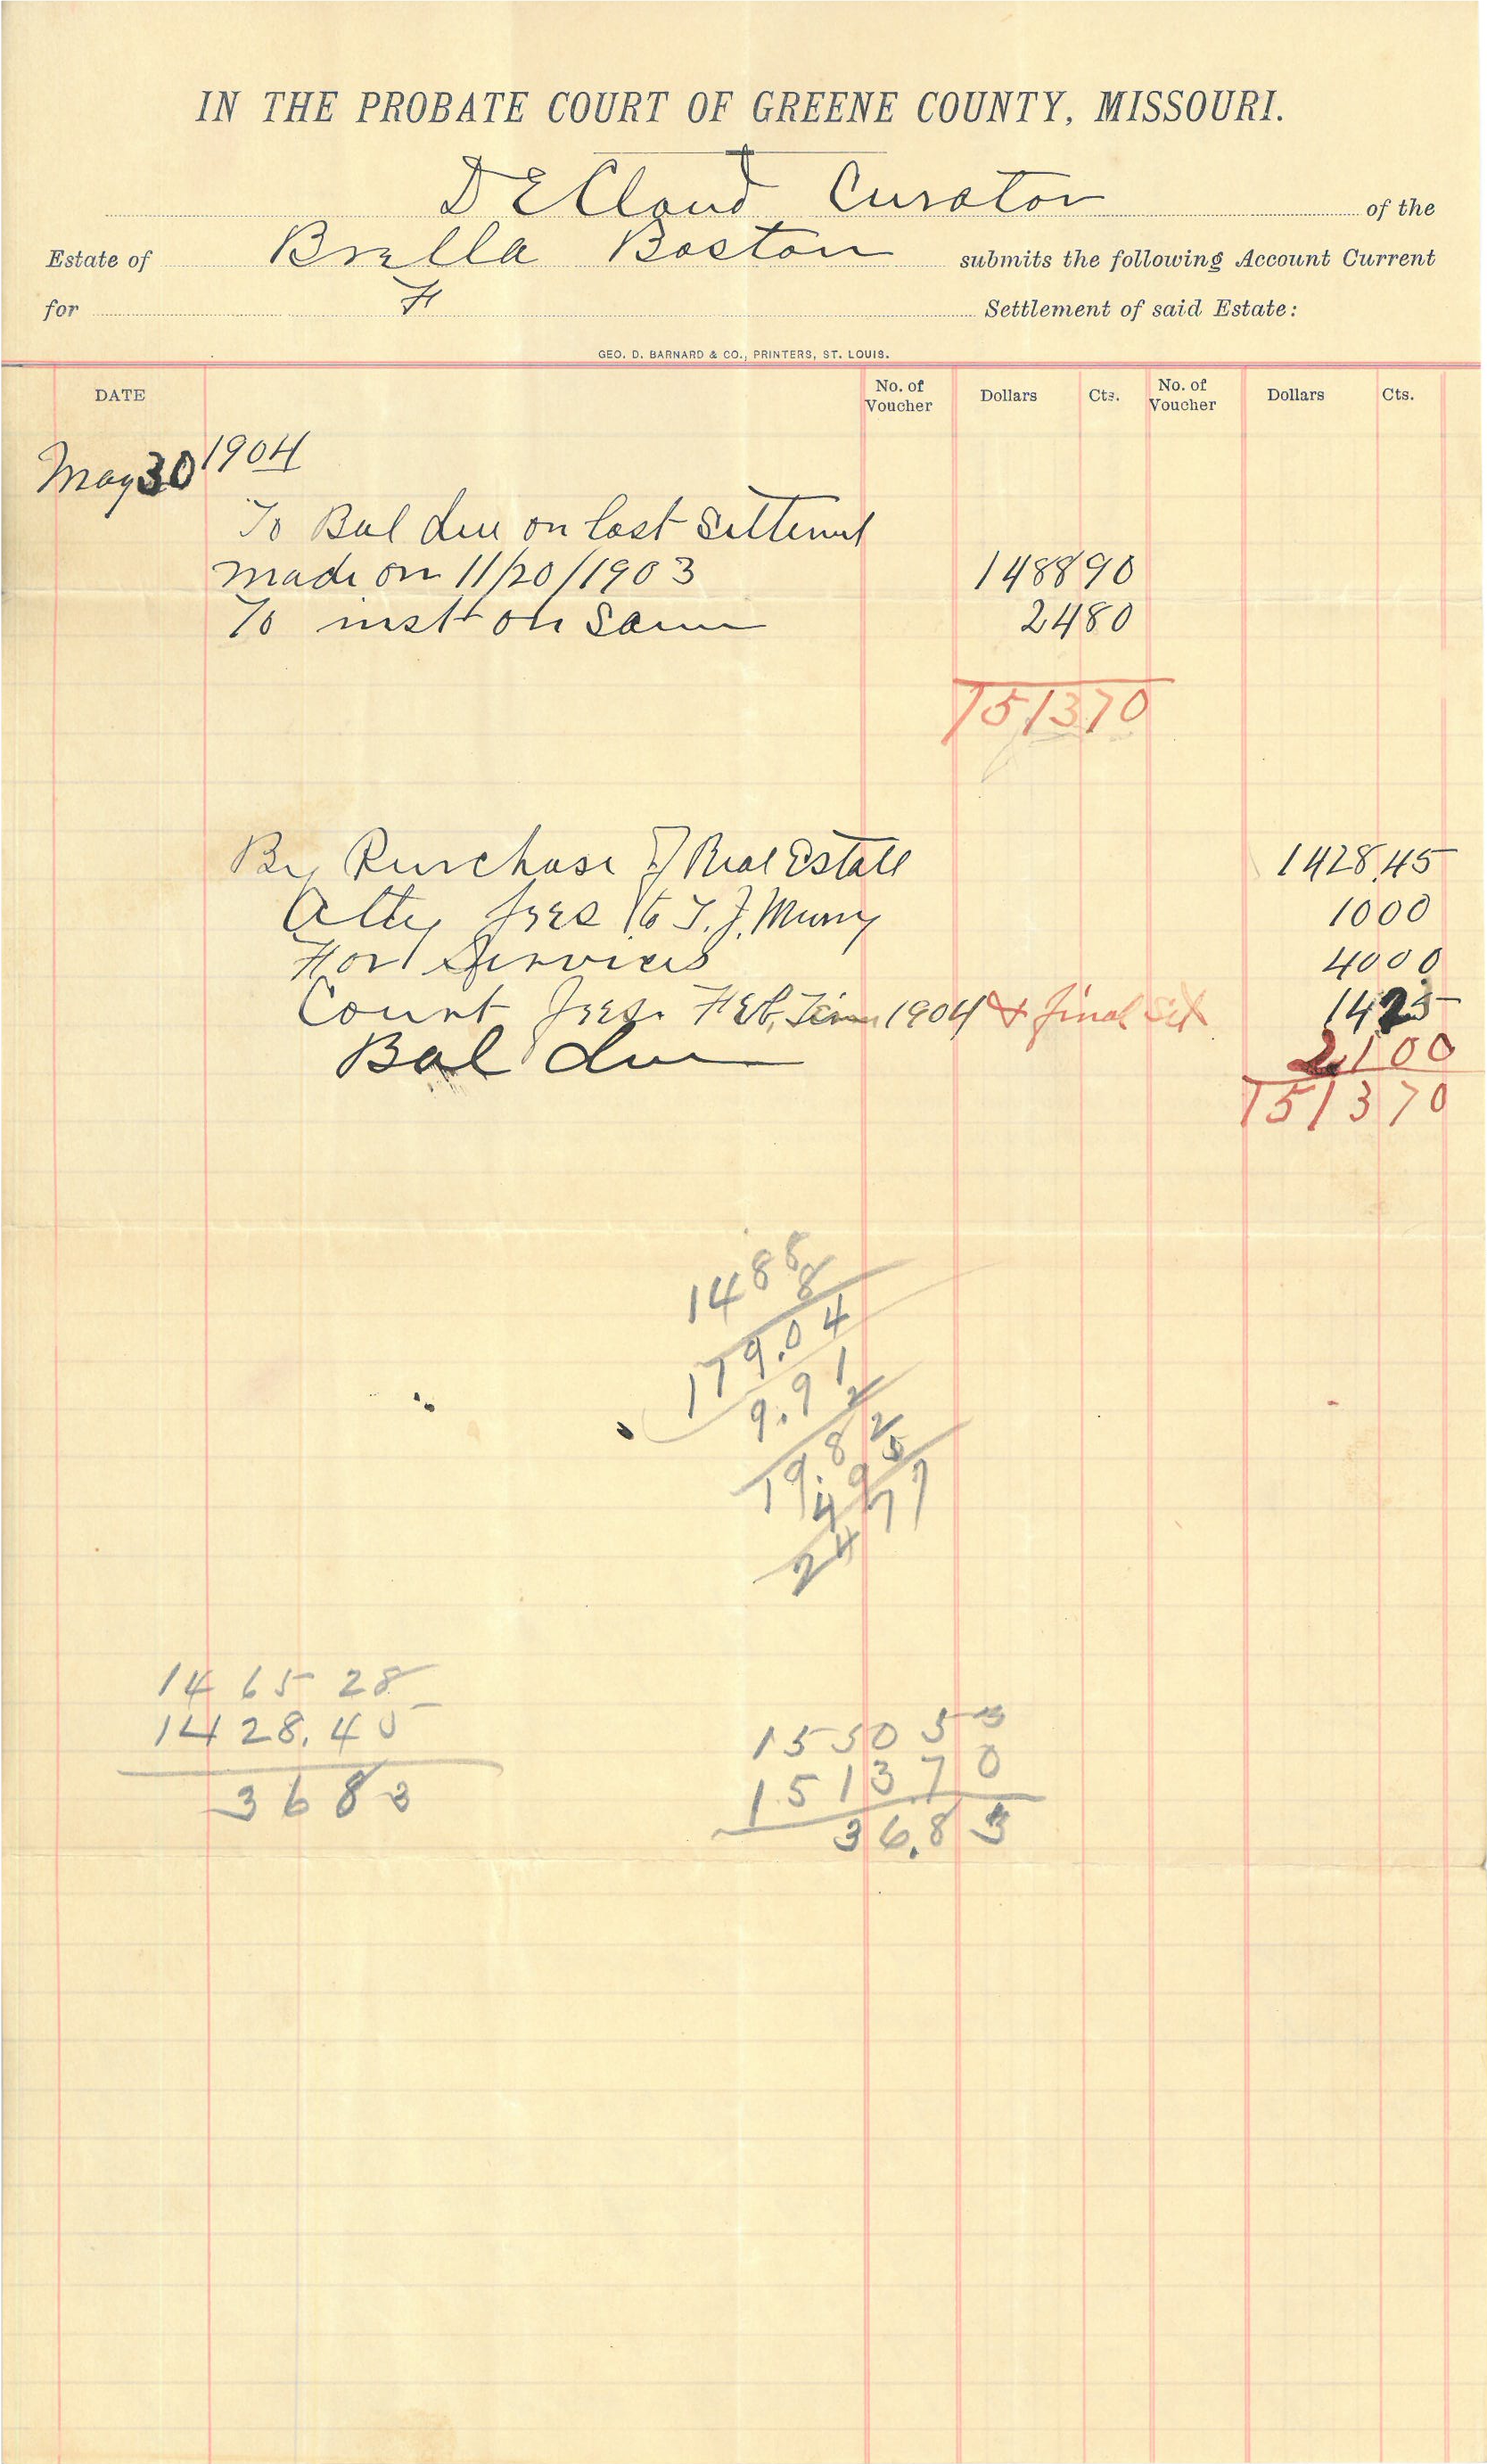 IN THE PROBATE COURT OF GREENE COUNTY, MISSOURI.
D E Cloud Curator of the
Estate of Brella Boston submits the following Account Current
for Settlement of said Estate:
GEO. D. BARNARD & CO., PRINTERS, ST. LOUIS.
DATE No. of Voucher Dollars Cts. No. of Voucher Dollars Cts.
May 30 1904
To Bal due on last Settlement
made on 11/20/1903 1488 90
To inst on Same 24 80
1513 70
By Purchase of Real Estate 1428.45
Atty fees to T. J. Murry 10 00
For Services 40 00
Court fees. Feb, Term 1904 & final Set 14 25
Bal due 21 00
1513 70
1488
8
119.04
9.91
2
19.82
4 95
24 77
1465 28
1428.45
36 83
1550 53
1513 70
36.83